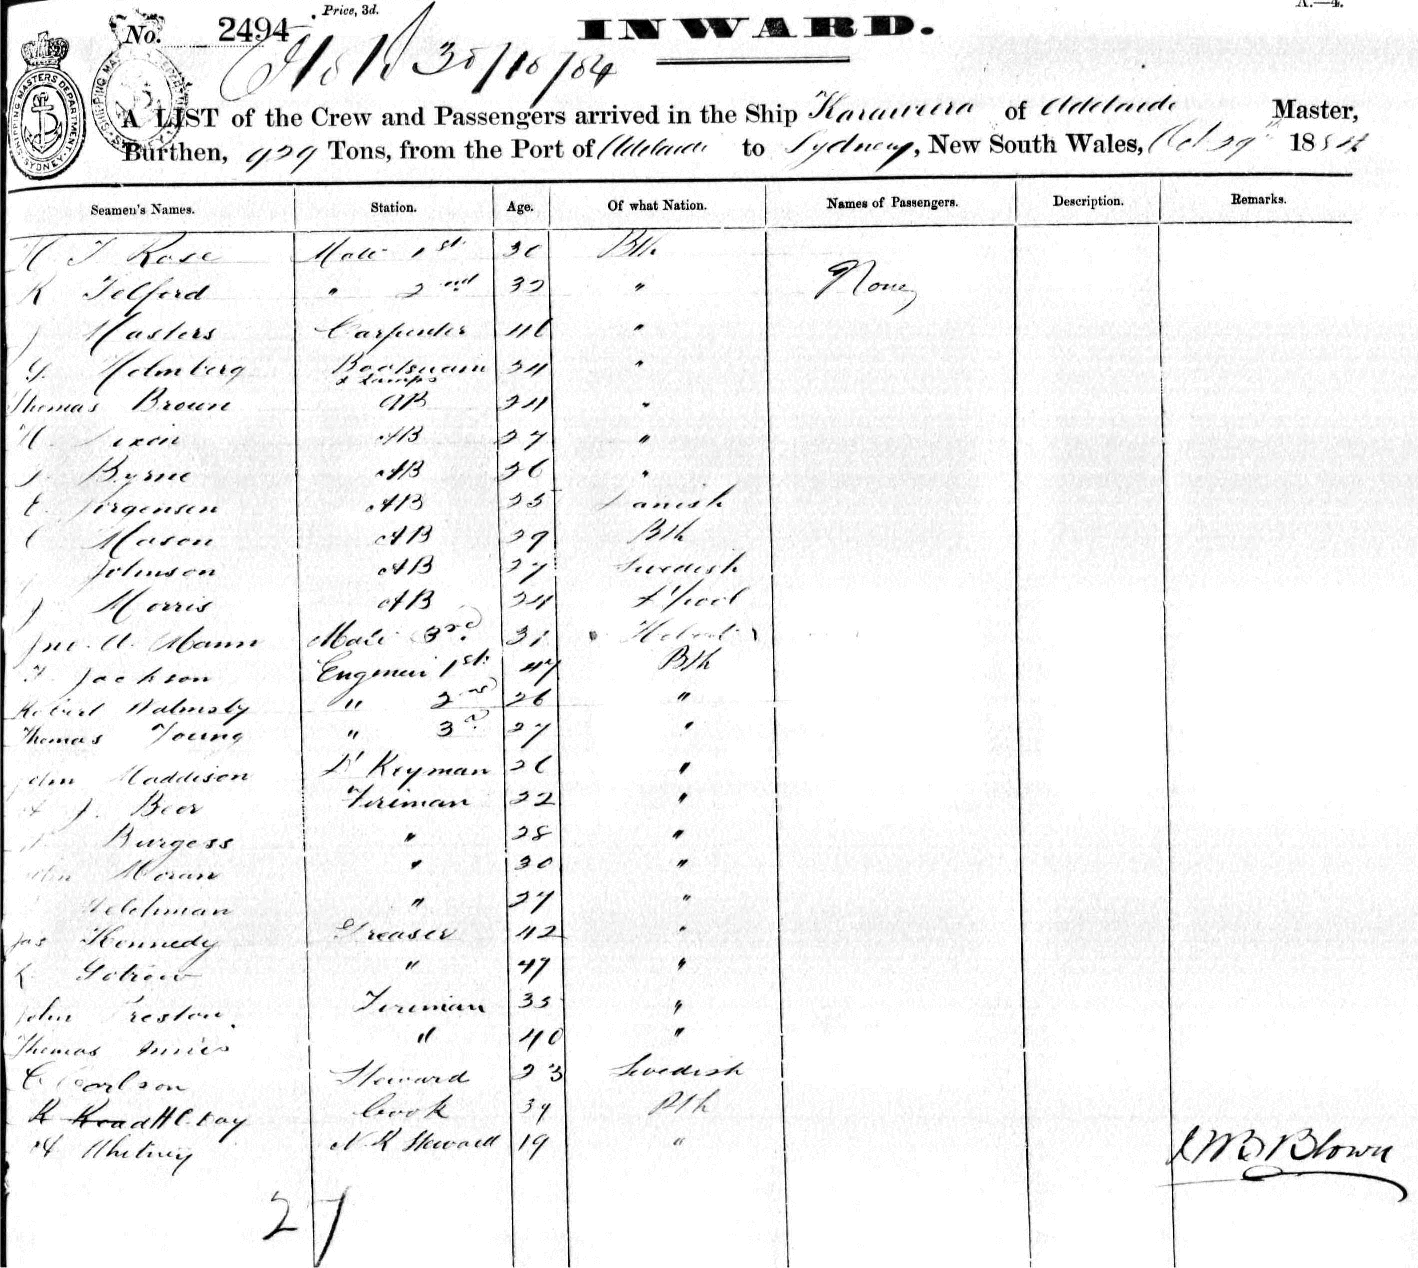 Price, 3d.
A.—4.
No. 2494
INWARD.
30/10/84
SHIPPING MASTERS DEPARTMENT SYDNEY
A LIST of the Crew and Passengers arrived in the Ship Karaweera of Adelaide Master,
Burthen, 929 Tons, from the Port of Adelaide to Sydney, New South Wales, Oct 29th 1884
Seamen's Names. Station. Age. Of what Nation. Names of Passengers. Description. Remarks.
H J Rose Mate 1st 30 Bth
R Telford " 2nd 32 " None
J Masters Carpenter 46 "
G Holmberg Boatswain 24 "
& Lamps
Thomas Brown AB 24 "
H Dixon AB 27 "
Byrne AB 26 "
E Jorgensen AB 25 Danish
C Mason AB 29 Bth
Johnson AB 27 Swedish
J Morris AB 24 L'pool
Jno. A. Mann Mate 3rd. 31 Hobart
T Jackson Engineer 1st 47 Bth
Robert Walmsly " 2nd 26 "
Thomas Young " 3rd. 27 "
John Maddison D'Keyman 26 "
A J. Beer Fireman 22 "
Burgess " 28 "
John Moran " 30 "
Welchman " 27 "
Jas Kennedy Greaser 42 "
" 47 "
John Preston Fireman 35 "
Thomas Innes " 40 "
C Carlson Steward 23 Swedish
R Read H C. Day Cook 39 Bth
A Whitney Steward 19 "
Brown
27